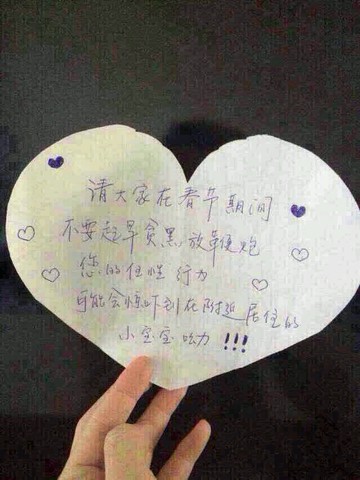 请大家在春节期间
不要起早贪黑放鞭炮
您的任性行为
可能会惊吓到在附近居住的
小宝宝呦 !!!